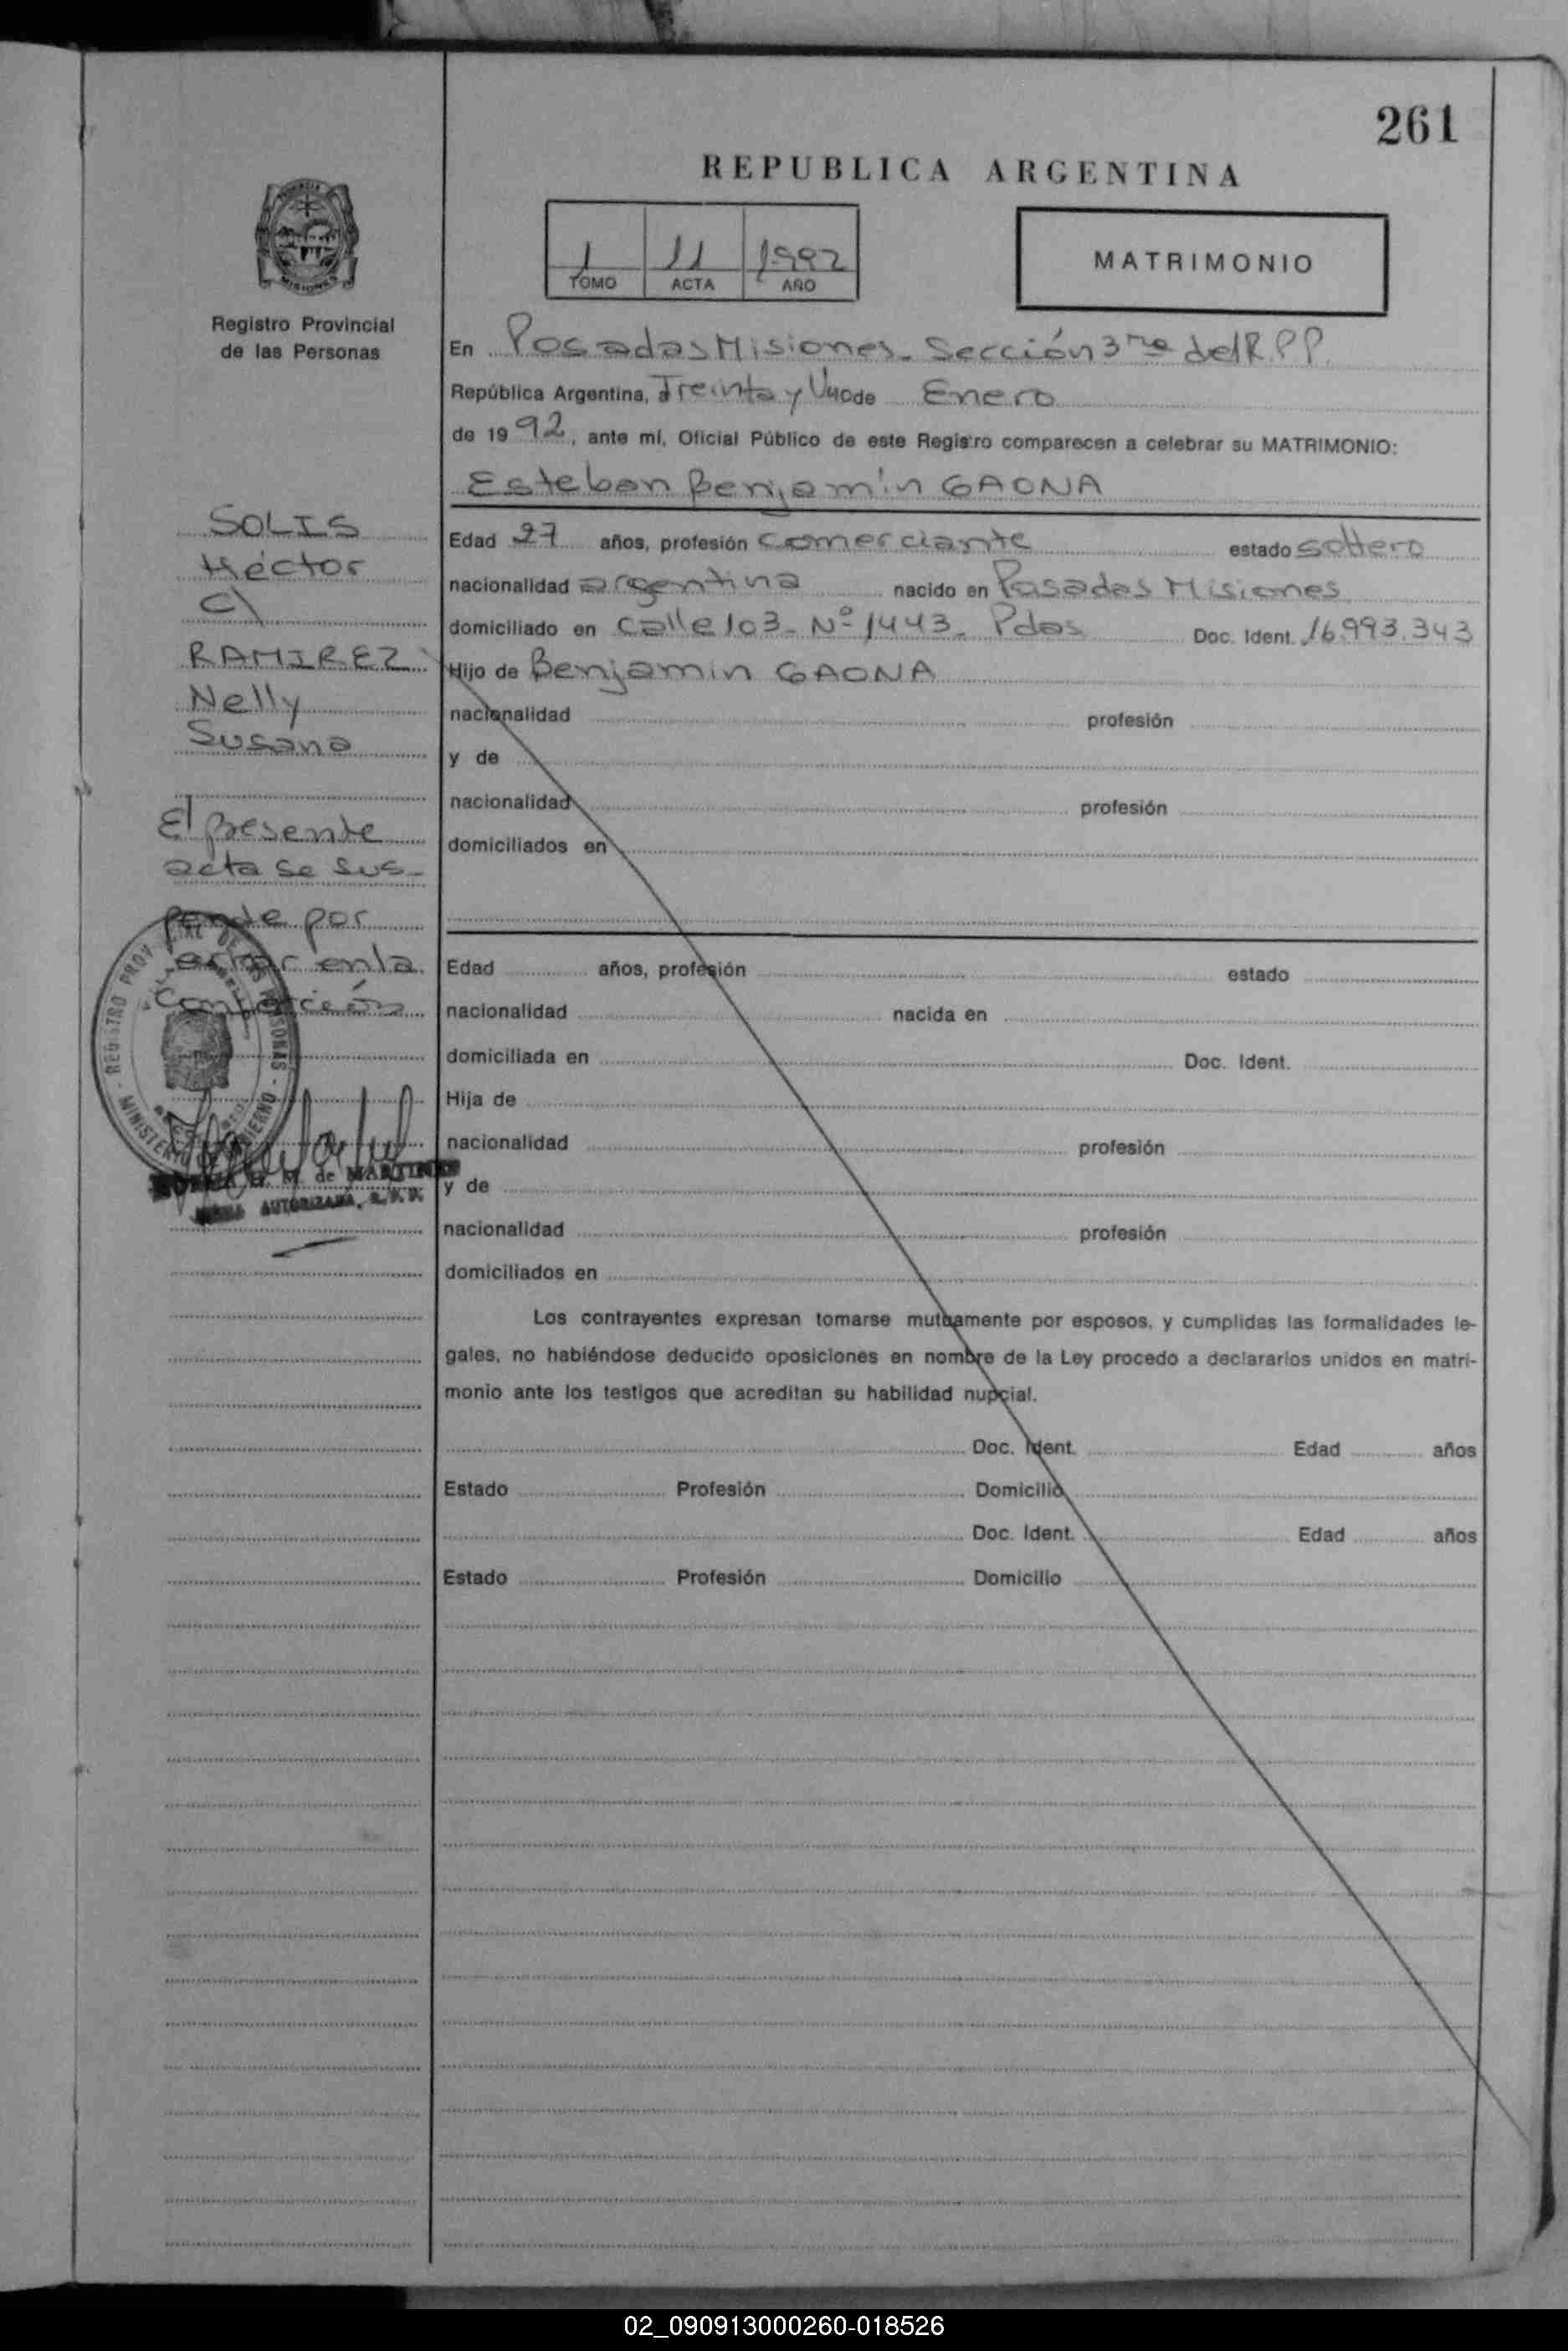 261
REPUBLICA ARGENTINA
1 11 1992
TOMO ACTA AÑO
MATRIMONIO
MISIONES
Registro Provincial
de las Personas
En Posadas Misiones. Sección 3ra del R.P.P.
República Argentina, Treinta y Uno de Enero
de 1992, ante mí, Oficial Público de este Registro comparecen a celebrar su MATRIMONIO:
Esteban Benjamín GAONA
SOLIS
Héctor
C\
RAMIREZ
Nelly
Susana
El presente
acta se sus-
pende por
error en la
confección
REGISTRO PROV. DE PERSONAS - MINISTERIO GOBIERNO -
M. de MARTINEZ
AUTORIZADA, R.P.P.
Edad 27 años, profesión comerciante estado soltero
nacionalidad argentina nacido en Posadas Misiones
domiciliado en calle 103 - Nº 1443. Pdas Doc. Ident. 16.993.343
Hijo de Benjamin GAONA
nacionalidad profesión
y de
nacionalidad profesión
domiciliados en
Edad años, profesión estado
nacionalidad nacida en
domiciliada en Doc. Ident.
Hija de
nacionalidad profesión
y de
nacionalidad profesión
domiciliados en
Los contrayentes expresan tomarse mutuamente por esposos, y cumplidas las formalidades le-
gales, no habiéndose deducido oposiciones en nombre de la Ley procedo a declararlos unidos en matri-
monio ante los testigos que acreditan su habilidad nupcial.
Doc. Ident. Edad años
Estado Profesión Domicilio
Doc. Ident. Edad años
Estado Profesión Domicilio
02_090913000260-018526